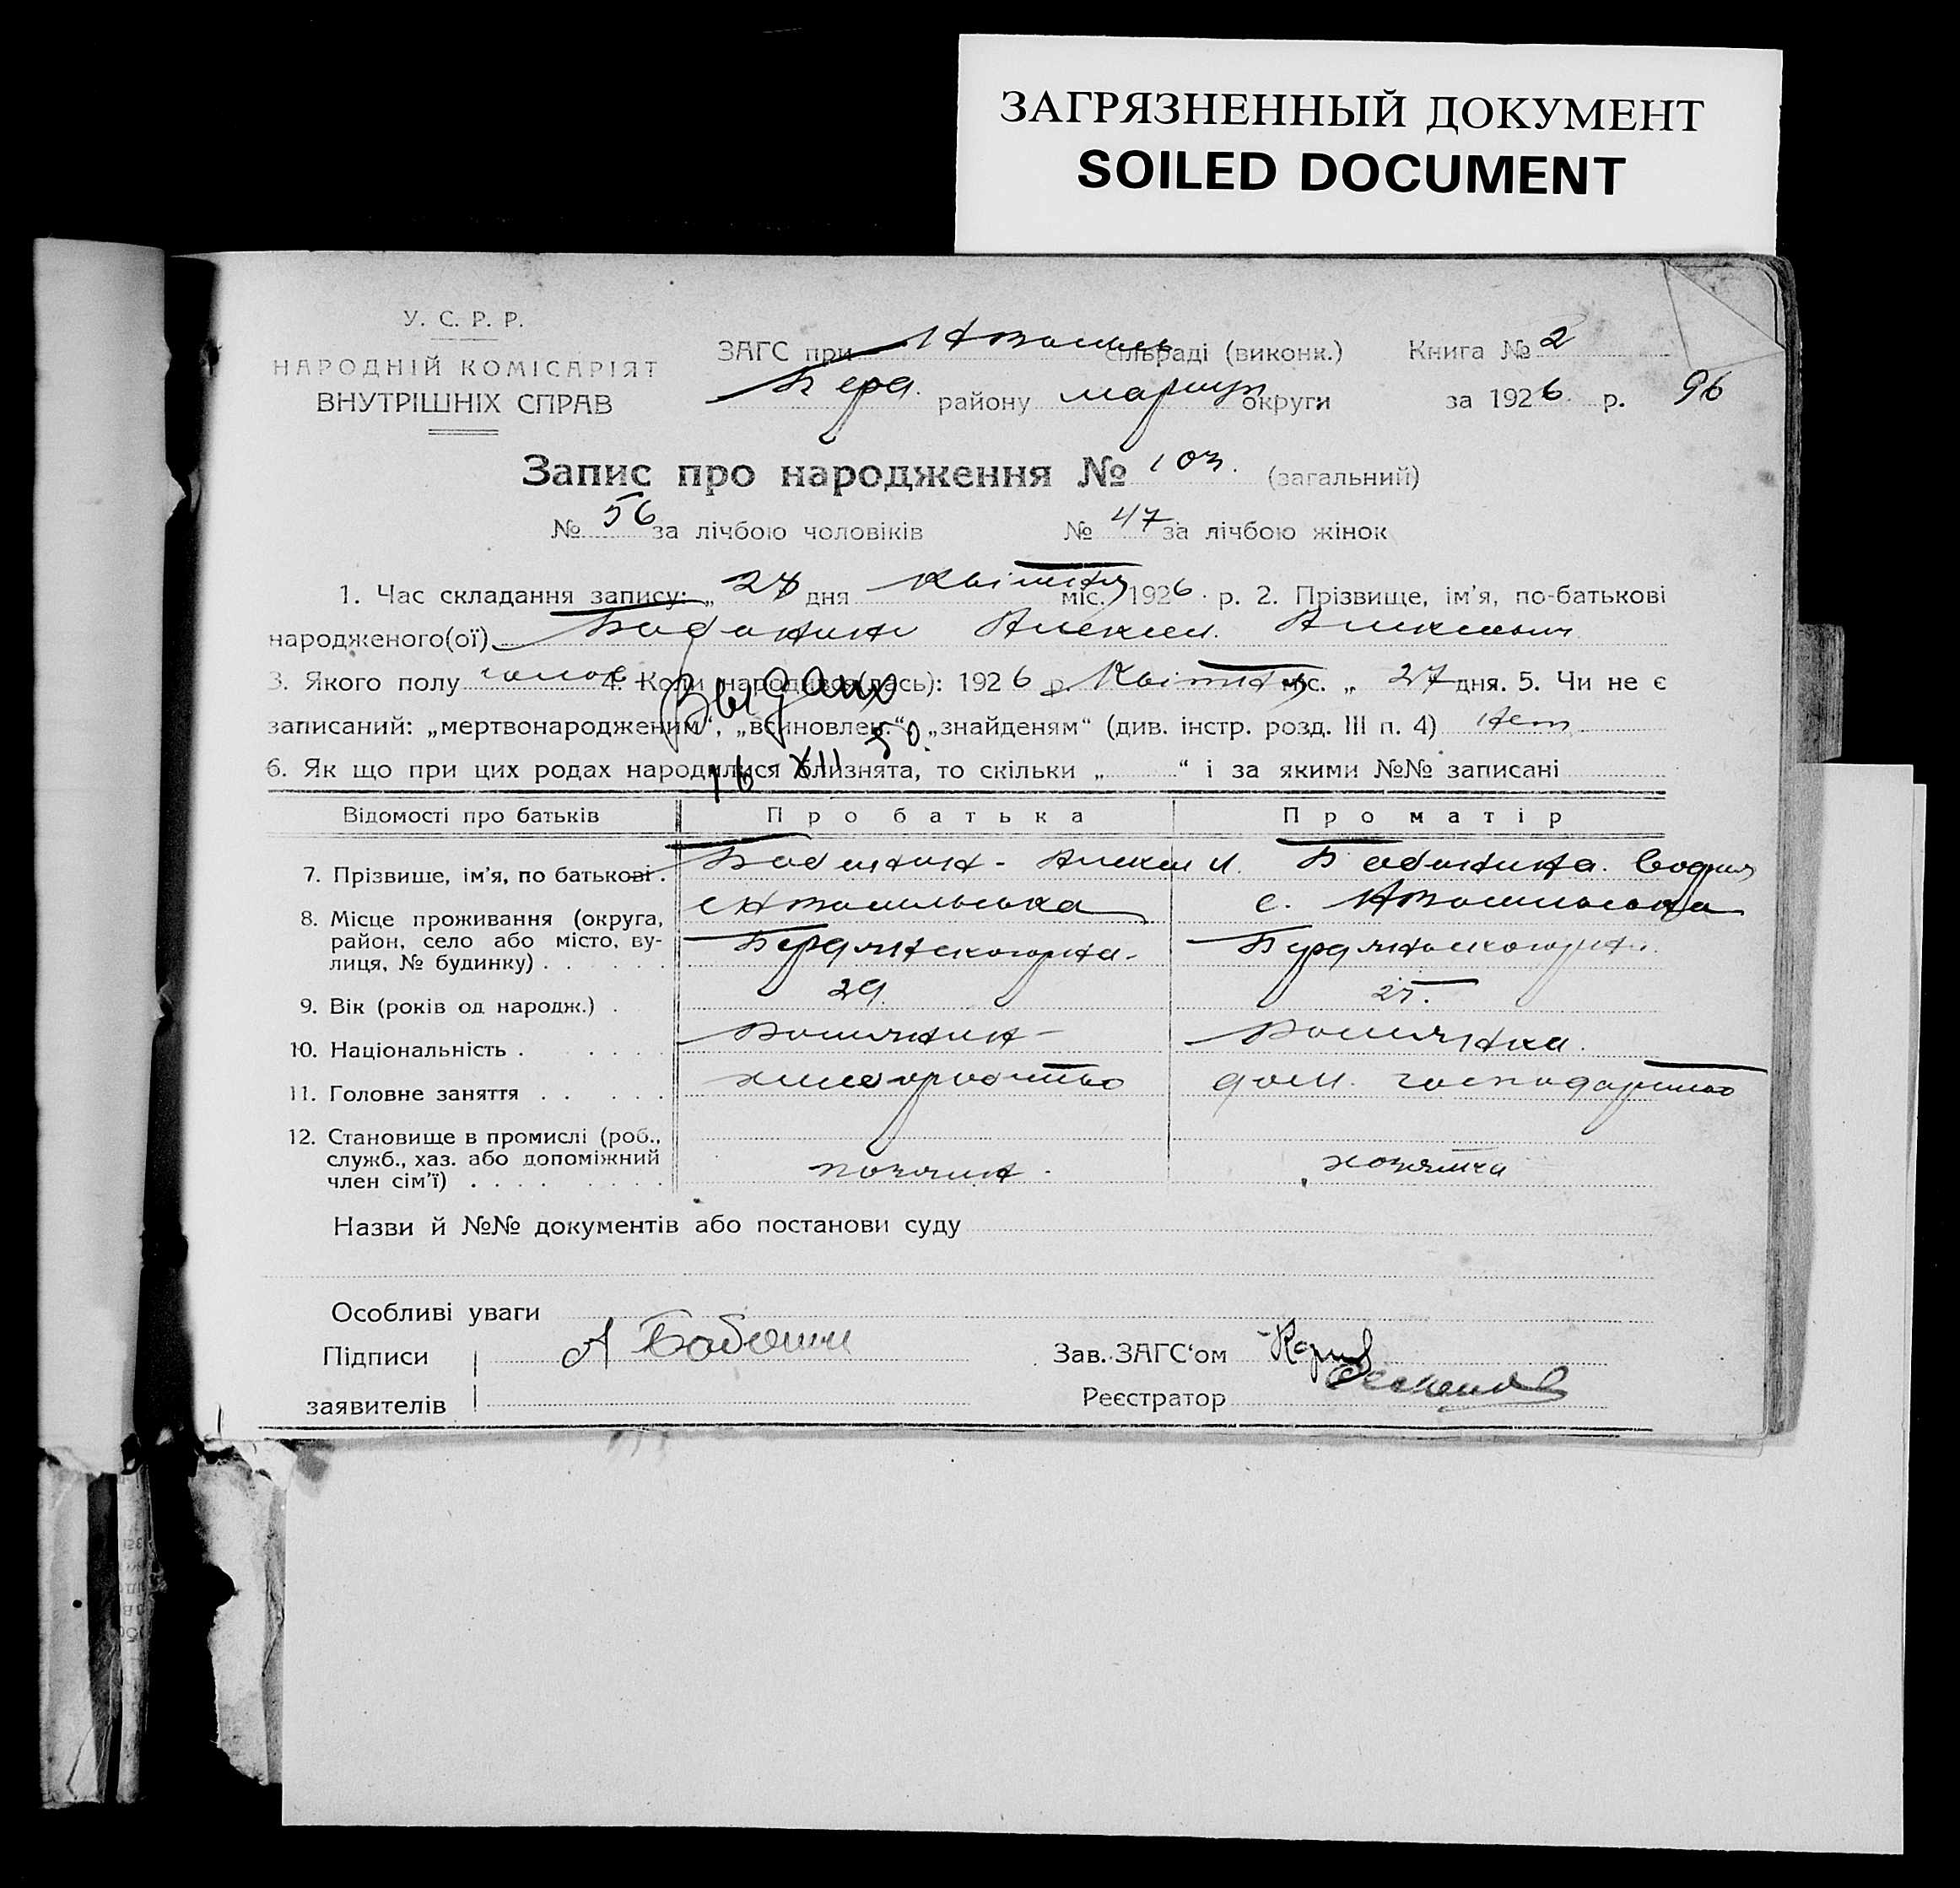 ЗАГРЯЗНЕННЫЙ ДОКУМЕНТ
SOILED DOCUMENT
У. С. Р. Р.
НАРОДНІЙ КОМІСАРІЯТ
ВНУТРІШНІХ СПРАВ
ЗАГС при сільраді (виконк.) Книга № 2
Берд. району мариуп. округи за 1926 р. 96
Запис про народження № 103. (загальний)
№ 56 за лічбою чоловіків № 47 за лічбою жінок
1. Час складання запису: „ 28 дня Квітня міс. 1926 р. 2. Прізвище, ім'я, по-батькові
народженого(ої) Алексей Алексеевич
3. Якого полу чолов 4. Коли народився(лась): 1926 р. Квітня міс. „ 27 дня. 5. Чи не є
Выдано
записаний: „мертвонародженим“, „всиновлен.“, „знайденям“ (див. інстр. розд. III п. 4) нет
16 XII 50.
6. Як що при цих родах народилися близнята, то скільки „ “ і за якими №№ записані
Відомості про батьків Про батька Про матір
7. Прізвише, ім'я, по батькові . Алексей
8. Місце проживання (округа, район, село або місто, вулиця, № будинку) . с.
Бердянского р-на. Бердянского р-на.
9. Вік (років од народж.) . 29. 25.
10. Національність . Болгарин Болгарка.
11. Головне заняття . хлеборобство дом. господарство
12. Становище в промислі (роб.,
служб., хаз. або допоміжний
член сім'ї) . хозяин хозяйка
Назви й №№ документів або постанови суду
Особливі уваги
Підписи
заявителів
Зав. ЗАГС'ом
Реєстратор